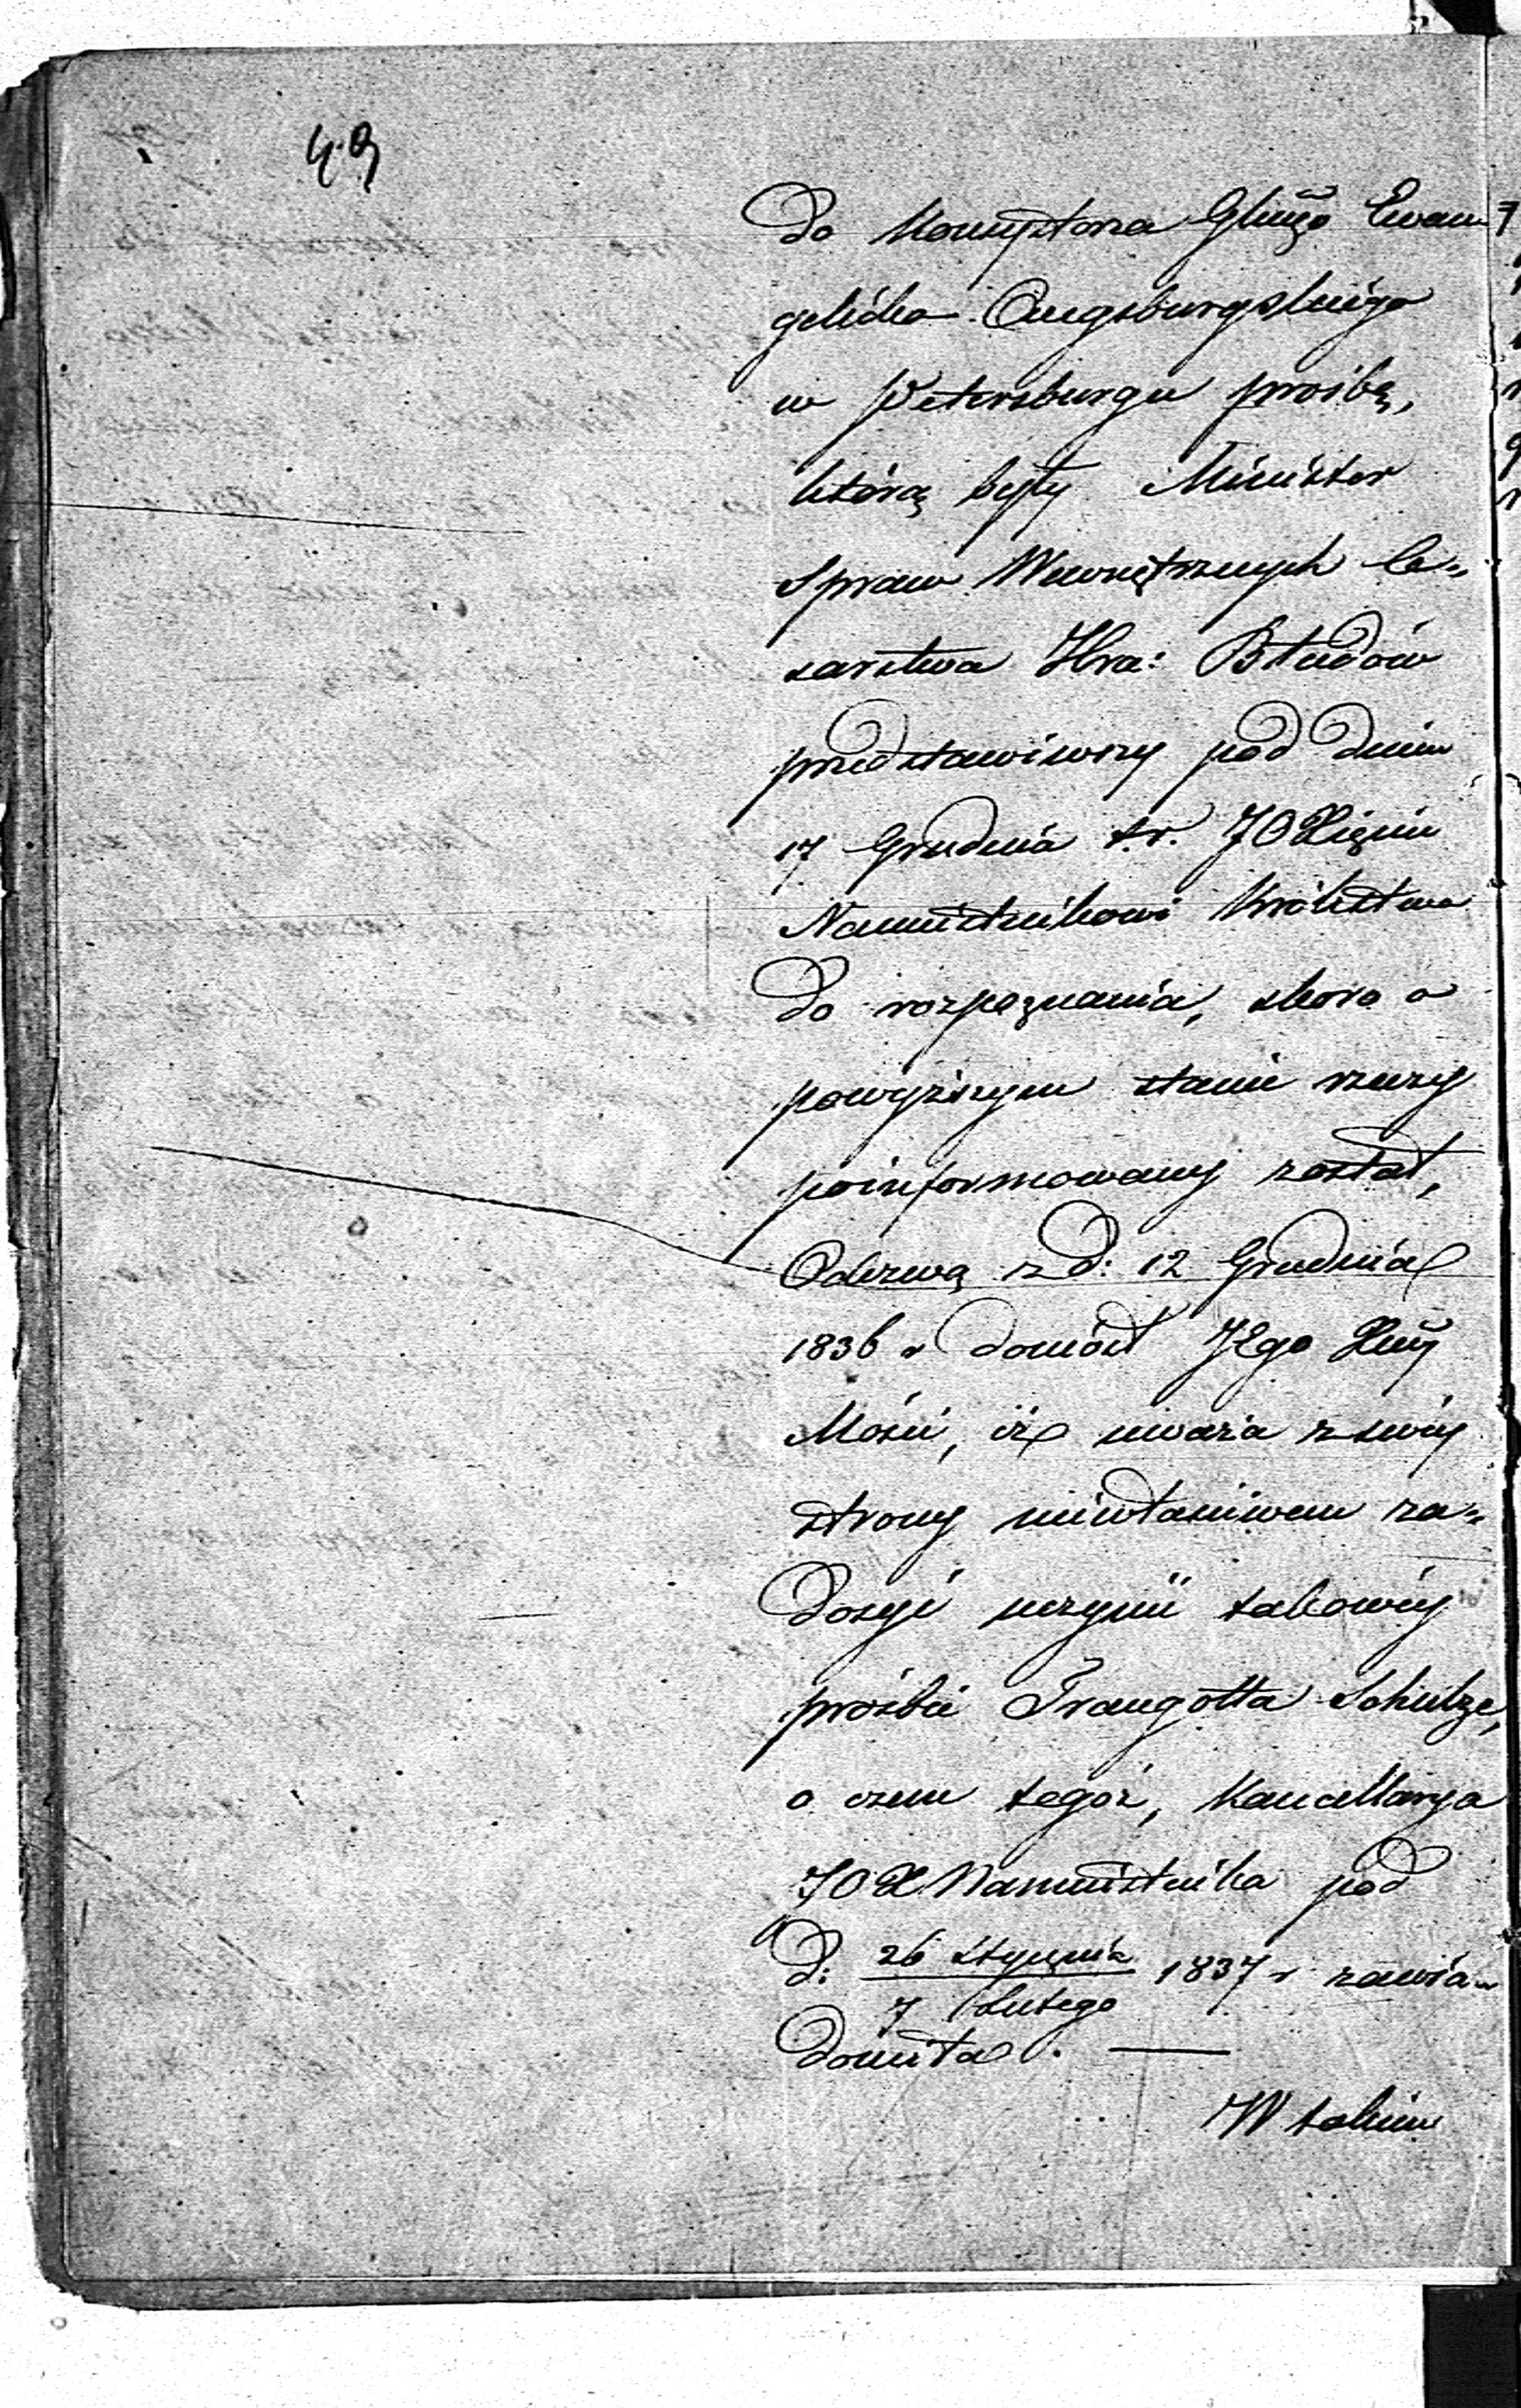 49
do Konsystorza Głnego Ewan-
gelicko Augsburgskiego
w Petersburgu prośbę,
którą były Minister
Spraw Wewnętrznych Ce=
sarstwa Hra: Błudów
przedstawiwszy pod dniem
17 Grudnia t.r. JO Xięciu
Namiestnikowi Królestwa
do rozpoznania, skoro o
powyższym stanie rzeczy
poinformowany został,
Odezwą z d: 12 Grudnia
1836 r doniósł JEgo Xcéj
Mości, iż uważa z swéj
strony niewłaściwem za=
dosyć uczynić takowéj
prośbie Traugotta Schultze,
o czem tegóż, Kancellarya
JOX Namiestnika pod
d: 26 Stycznia / 7 Lutego 1837 r zawia-
domiła. —
W takim